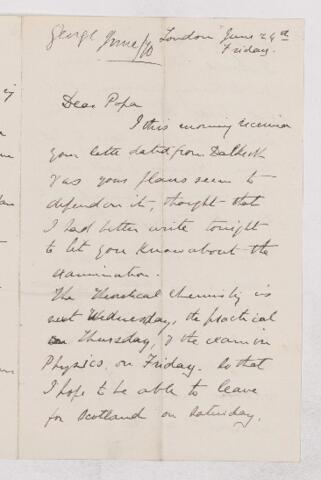 George June/60
London June 29th
Friday.
Dear Papa
I this morning received
your letter dated from
& as your plans seem to
depend on it, thought that
I had better write tonight
to let you know about the
examination.
The Theoretical Chemistry is
next Wednesday, the practical
on Thursday, & the exam in
Physics on Friday. So that
I hope to be able to leave
for Scotland on Saturday.